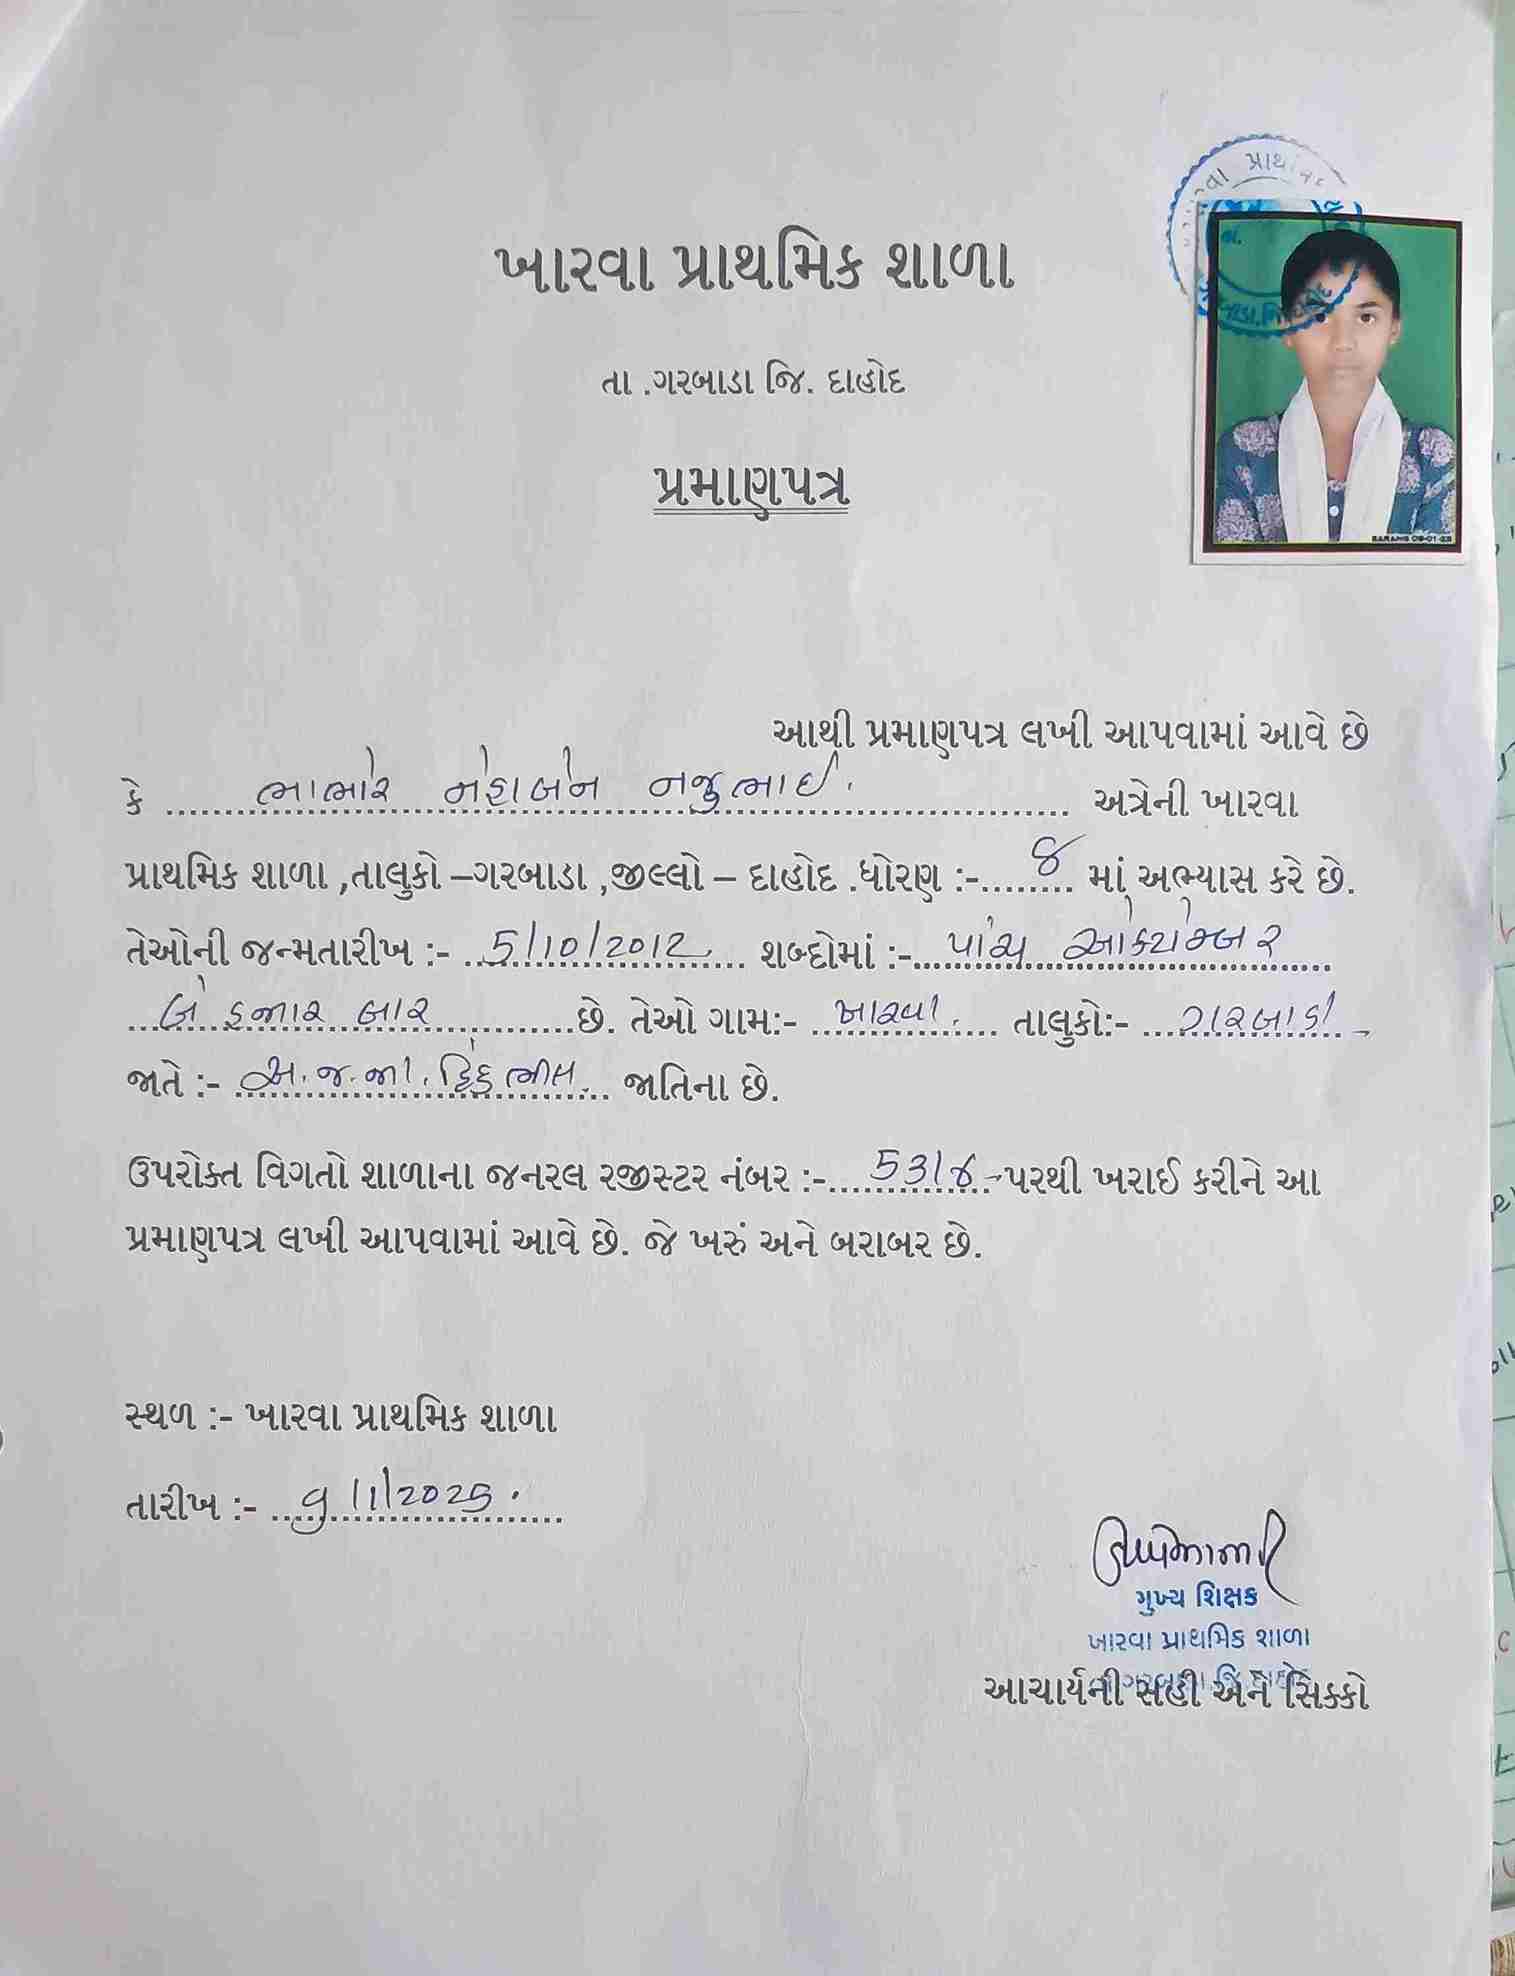 ખારવા પ્રાથમિક શાળા
તા .ગરબાડા જિ. દાહોદ
પ્રમાણપત્ર
આથી પ્રમાણપત્ર લખી આપવામાં આવે છે
કે ભાભોર નેહાબેન નજુભાઈ. અત્રેની ખારવા
પ્રાથમિક શાળા ,તાલુકો –ગરબાડા ,જીલ્લો – દાહોદ .ધોરણ :- ૪ માં અભ્યાસ કરે છે.
તેઓની જન્મતારીખ :- 5/10/2012 શબ્દોમાં :- પાંચ ઓક્ટોમ્બર
બે હજાર બાર છે. તેઓ ગામ:- ખારવા. તાલુકો:- ગરબાડા
જાતે :- અ.જ.જા. હિંદુ ભીલ જાતિના છે.
ઉપરોક્ત વિગતો શાળાના જનરલ રજીસ્ટર નંબર :- પરથી ખરાઈ કરીને આ
પ્રમાણપત્ર લખી આપવામાં આવે છે. જે ખરું અને બરાબર છે.
સ્થળ :- ખારવા પ્રાથમિક શાળા
તારીખ :- 9/1/2025.
મુખ્ય શિક્ષક
ખારવા પ્રાથમિક શાળા
આચાર્યની સહી અને સિક્કો